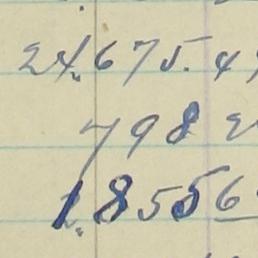 24,675.49
798 2
1,8556